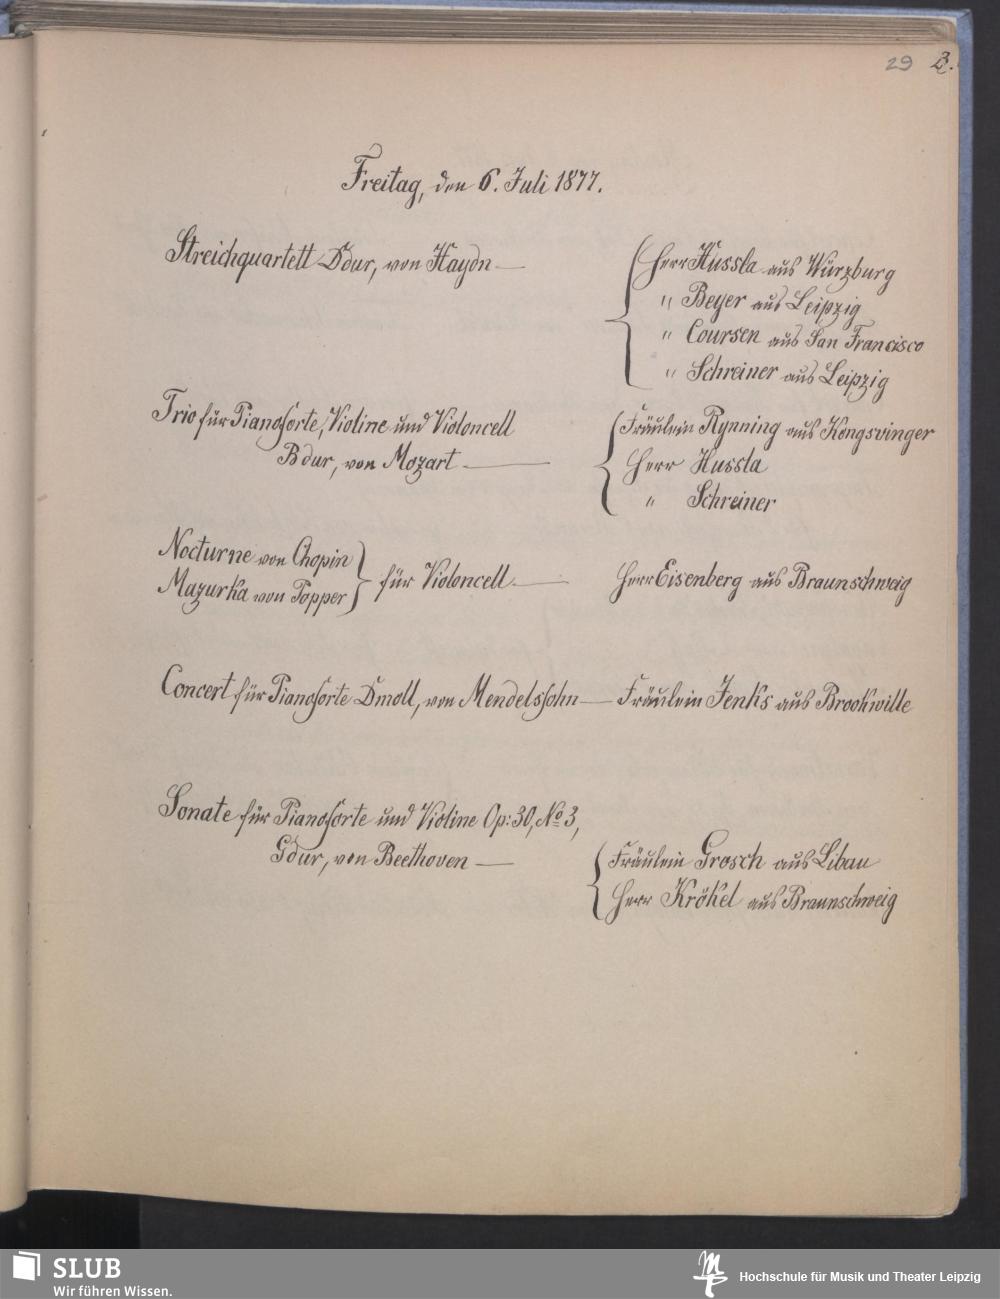 29
Freitag, den 6. Juli 1877.
Streichquartett Ddur, von Haydn —
Herr Hussla aus Würzburg
" Beyer aus Leipzig
" Coursen aus San Francisco
" Schreiner aus Leipzig
Trio für Pianoforte, Violine und Violoncell
Bdur, von Mozart —
Fräulein Rynning aus Kongsvinger
Herr Hussla
" Schreiner
Nocturne von Chopin
Mazurka von Popper
für Violoncell —
Herr Eisenberg aus Braunschweig
Concert für Pianoforte Dmoll, von Mendelssohn — Fräulein Jenks aus Brookville
Sonate für Pianoforte und Violine Op: 30, No 3,
Gdur, von Beethoven —
Fräulein Grosch aus Libau
Herr Krökel aus Braunschweig
SLUB
Wir führen Wissen.
Hochschule für Musik und Theater Leipzig